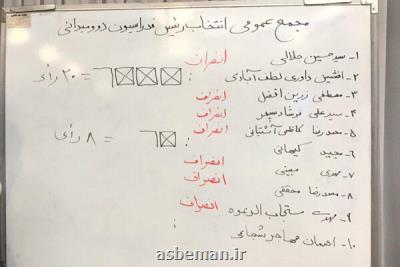 مجمع عمومی انتخاب رئیس فدراسیون دوومیدانی
۱- سید حسین جلالی انصراف
۲- افشین داوری لطف آبادی : = ۲۰ رأی
۳- مصطفی زرین افضل انصراف
۴- سید علی فرشاد سپهر انصراف
۵- محمدرضا کاظمی آشتیانی انصراف
۶- مجید کیهانی : = ۸ رأی
۷- مهدی مبینی انصراف
۸- محمدرضا محققی انصراف
۹- مهدی مستجاب الدعوه انصراف
۱۰- احسان مهاجر شجاعی :
asbeman.ir